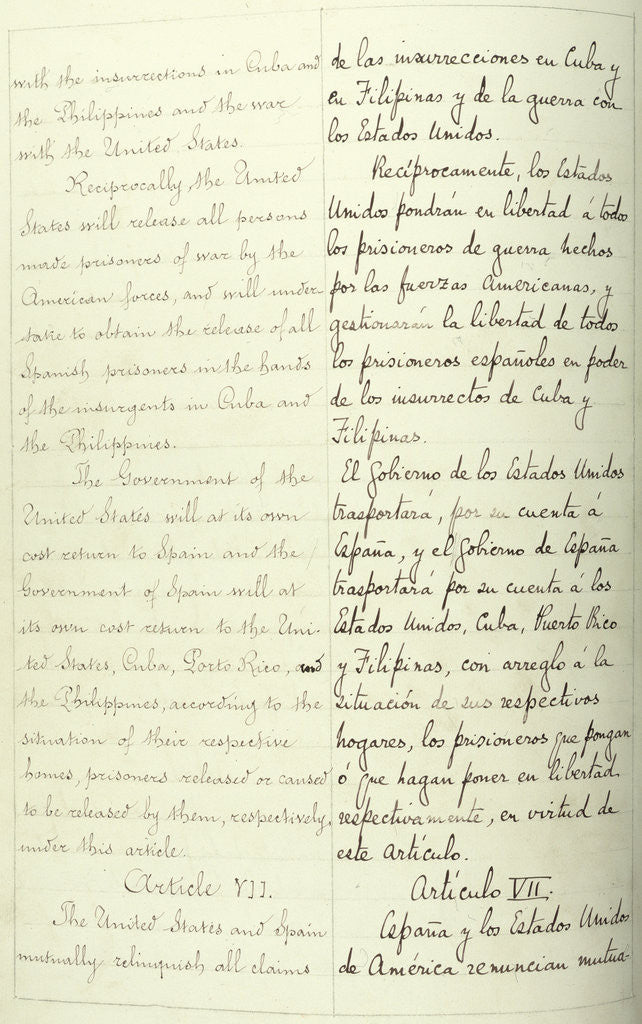 with the insurrections in Cuba and
the Philippines and the war
with the United States.
Reciprocally, the United
States will release all persons
made prisoners of war by the
American forces, and will under-
take to obtain the release of all
Spanish prisoners in the hands
of the insurgents in Cuba and
the Philippines.
The Government of the
United States will at its own
cost return to Spain and the
Government of Spain will at
its own cost return to the Uni-
ted States, Cuba, Porto Rico, and
the Philippines, according to the
situation of their respective
homes, prisoners released or caused
to be released by them, respectively,
under this article.
Article VII.
The United States and Spain
mutually relinquish all claims
de las insurrecciones en Cuba y
en Filipinas y de la guerra con
los Estados Unidos.
Recíprocamente, los Estados
Unidos pondrán en libertad á todos
los prisioneros de guerra hechos
por las fuerzas Americanas, y
gestionarán la libertad de todos
los prisioneros españoles en poder
de los insurrectos de Cuba y
Filipinas.
El Gobierno de los Estados Unidos
trasportará, por su cuenta á
España, y el Gobierno de España
trasportará por su cuenta á los
Estados Unidos, Cuba, Puerto Rico
y Filipinas, con arreglo á la
situación de sus respectivos
hogares, los prisioneros que pongan
ó que hagan poner en libertad
respectivamente, en virtud de
este Artículo.
Artículo VII.
España y los Estados Unidos
de América renuncian mutua-